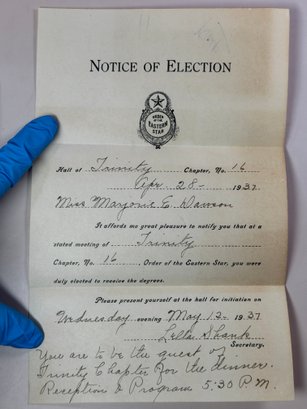 NOTICE OF ELECTION
ORDER OF THE EASTERN STAR
Hall of Trinity Chapter, No. 16
Apr 28- 1937
Miss Marjorie E. Dawson
It affords me great pleasure to notify you that at a
stated meeting of Trinity
Chapter, No. 16, Order of the Eastern Star, you were
duly elected to receive the degrees.
Please present yourself at the hall for initiation on
Wednesday evening May 12 1937
Lella Shank
Secretary.
You are to be the guest of
Trinity Chapter for the dinner.
Reception & Program 5:30 P.M.